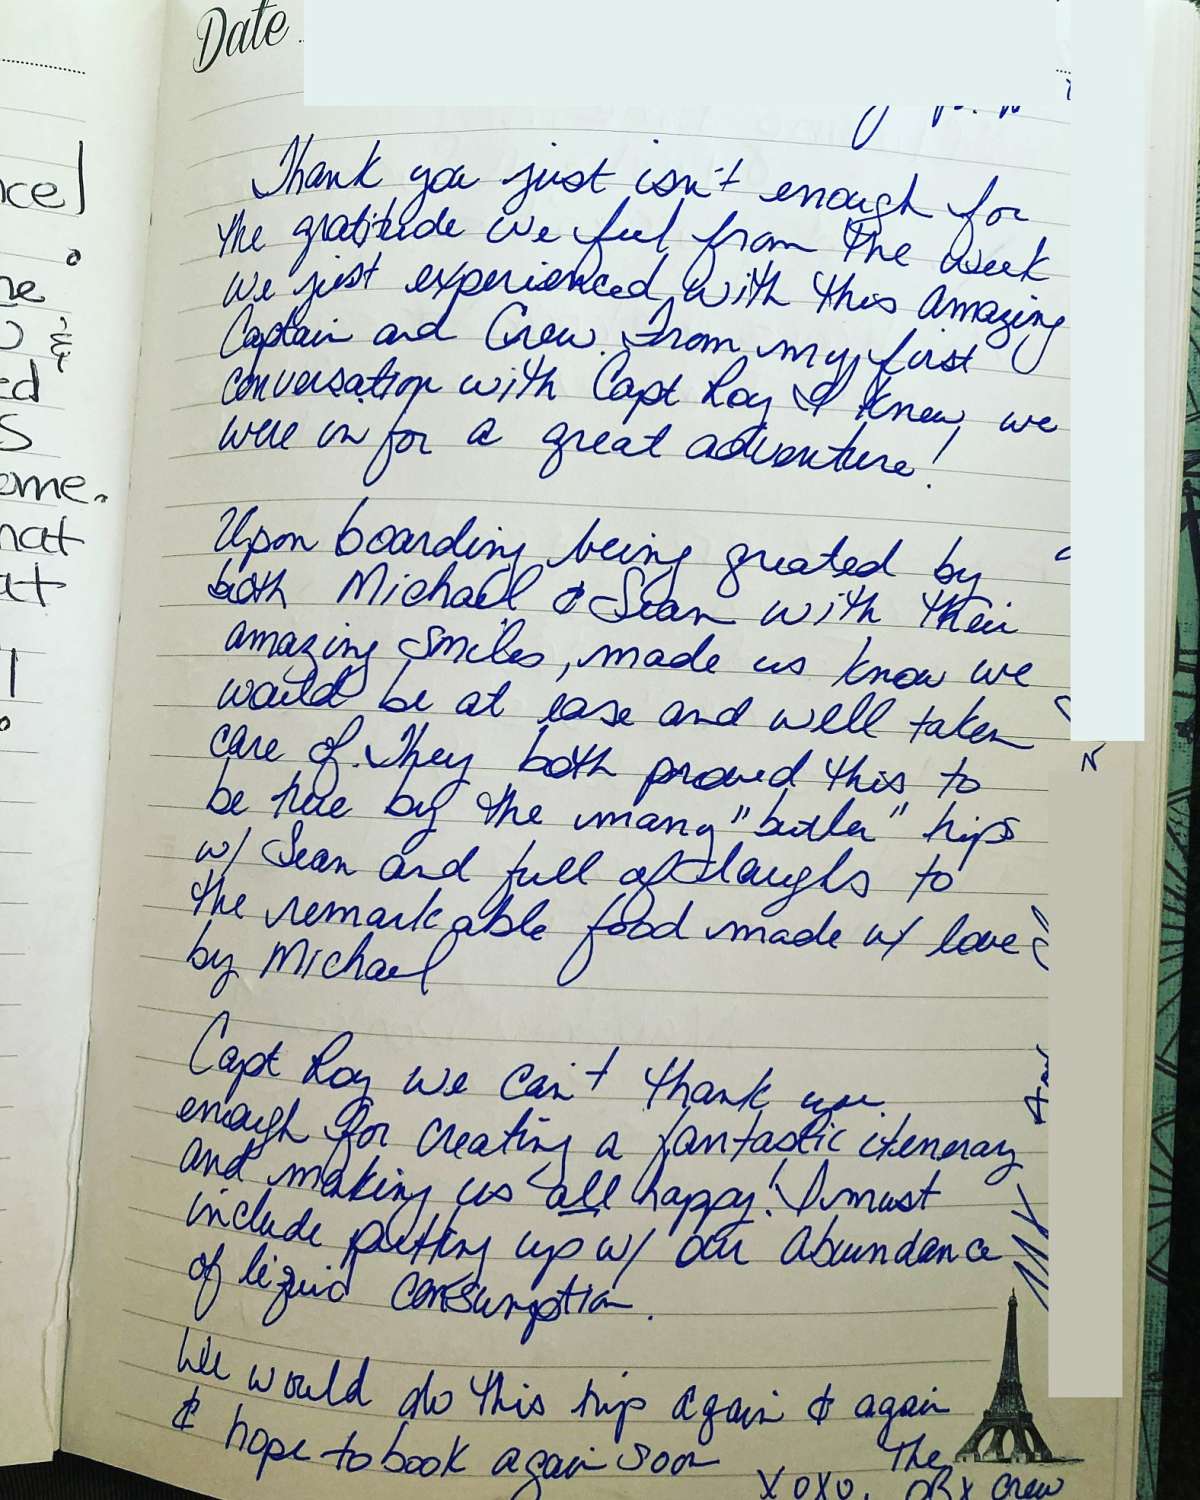 Date
Thank you just isn't enough for
the gratitude we feel from the week
we just experienced with this amazing
Captain and Crew. From my first
conversation with Capt Roy I knew we
were in for a great adventure!
Upon boarding being greated by
both Michael & Sean with their
amazing smiles, made us know we
would be at ease and well taken
care of. They both proved this to
be true by the many "butler" trips
w/ Sean and full of laughs to
the remarkable food made w/ love
by Michael
Capt Roy we can't thank you
enough for creating a fantastic itenerary
and making us all happy! I must
include putting up w/ our abundance
of liquid consumption.
We would do this trip again & again
& hope to book again soon
The
XOXO, OBX Crew
nce
ne
&
ed
S
ome.
hat
at